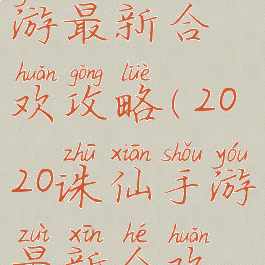 游最新合
huān gōng lüè
欢攻略(20
zhū xiān shǒu yóu
20诛仙手游
zuì xīn hé huān
最新合欢